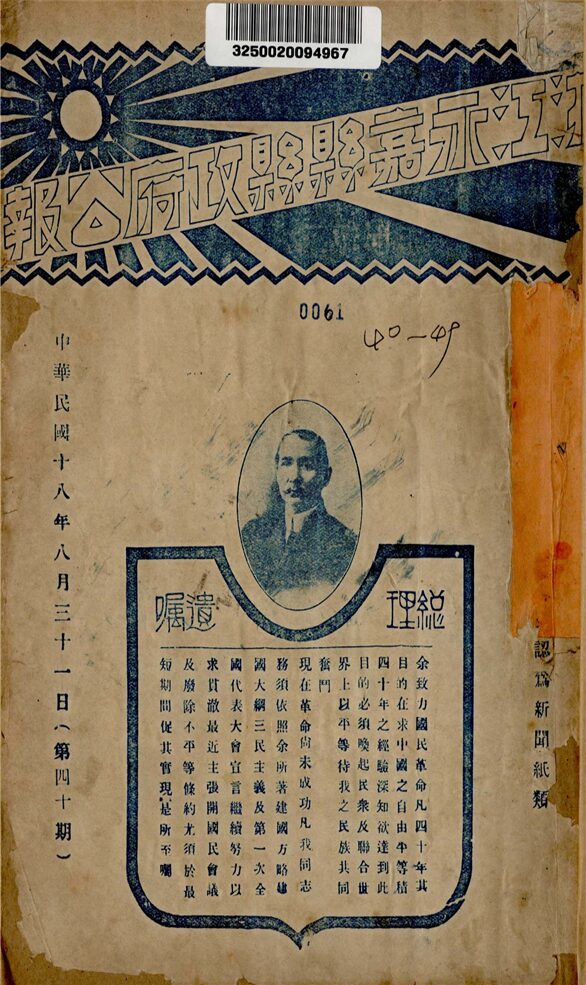 3250020094967
江永嘉縣縣政府公報
0061
40-49
認爲新聞紙類
總理
遺囑
余致力國民革命凡四十年其
目的在求中國之自由平等積
四十年之經驗深知欲達到此
目的必須喚起民衆及聯合世
界上以平等待我之民族共同
奮鬥
現在革命尚未成功凡我同志
務須依照余所著建國方略建
國大綱三民主義及第一次全
國代表大會宣言繼續努力以
求貫澈最近主張開國民會議
及廢除不平等條約尤須於最
短期間促其實現是所至囑
中華民國十八年八月三十一日(第四十期)